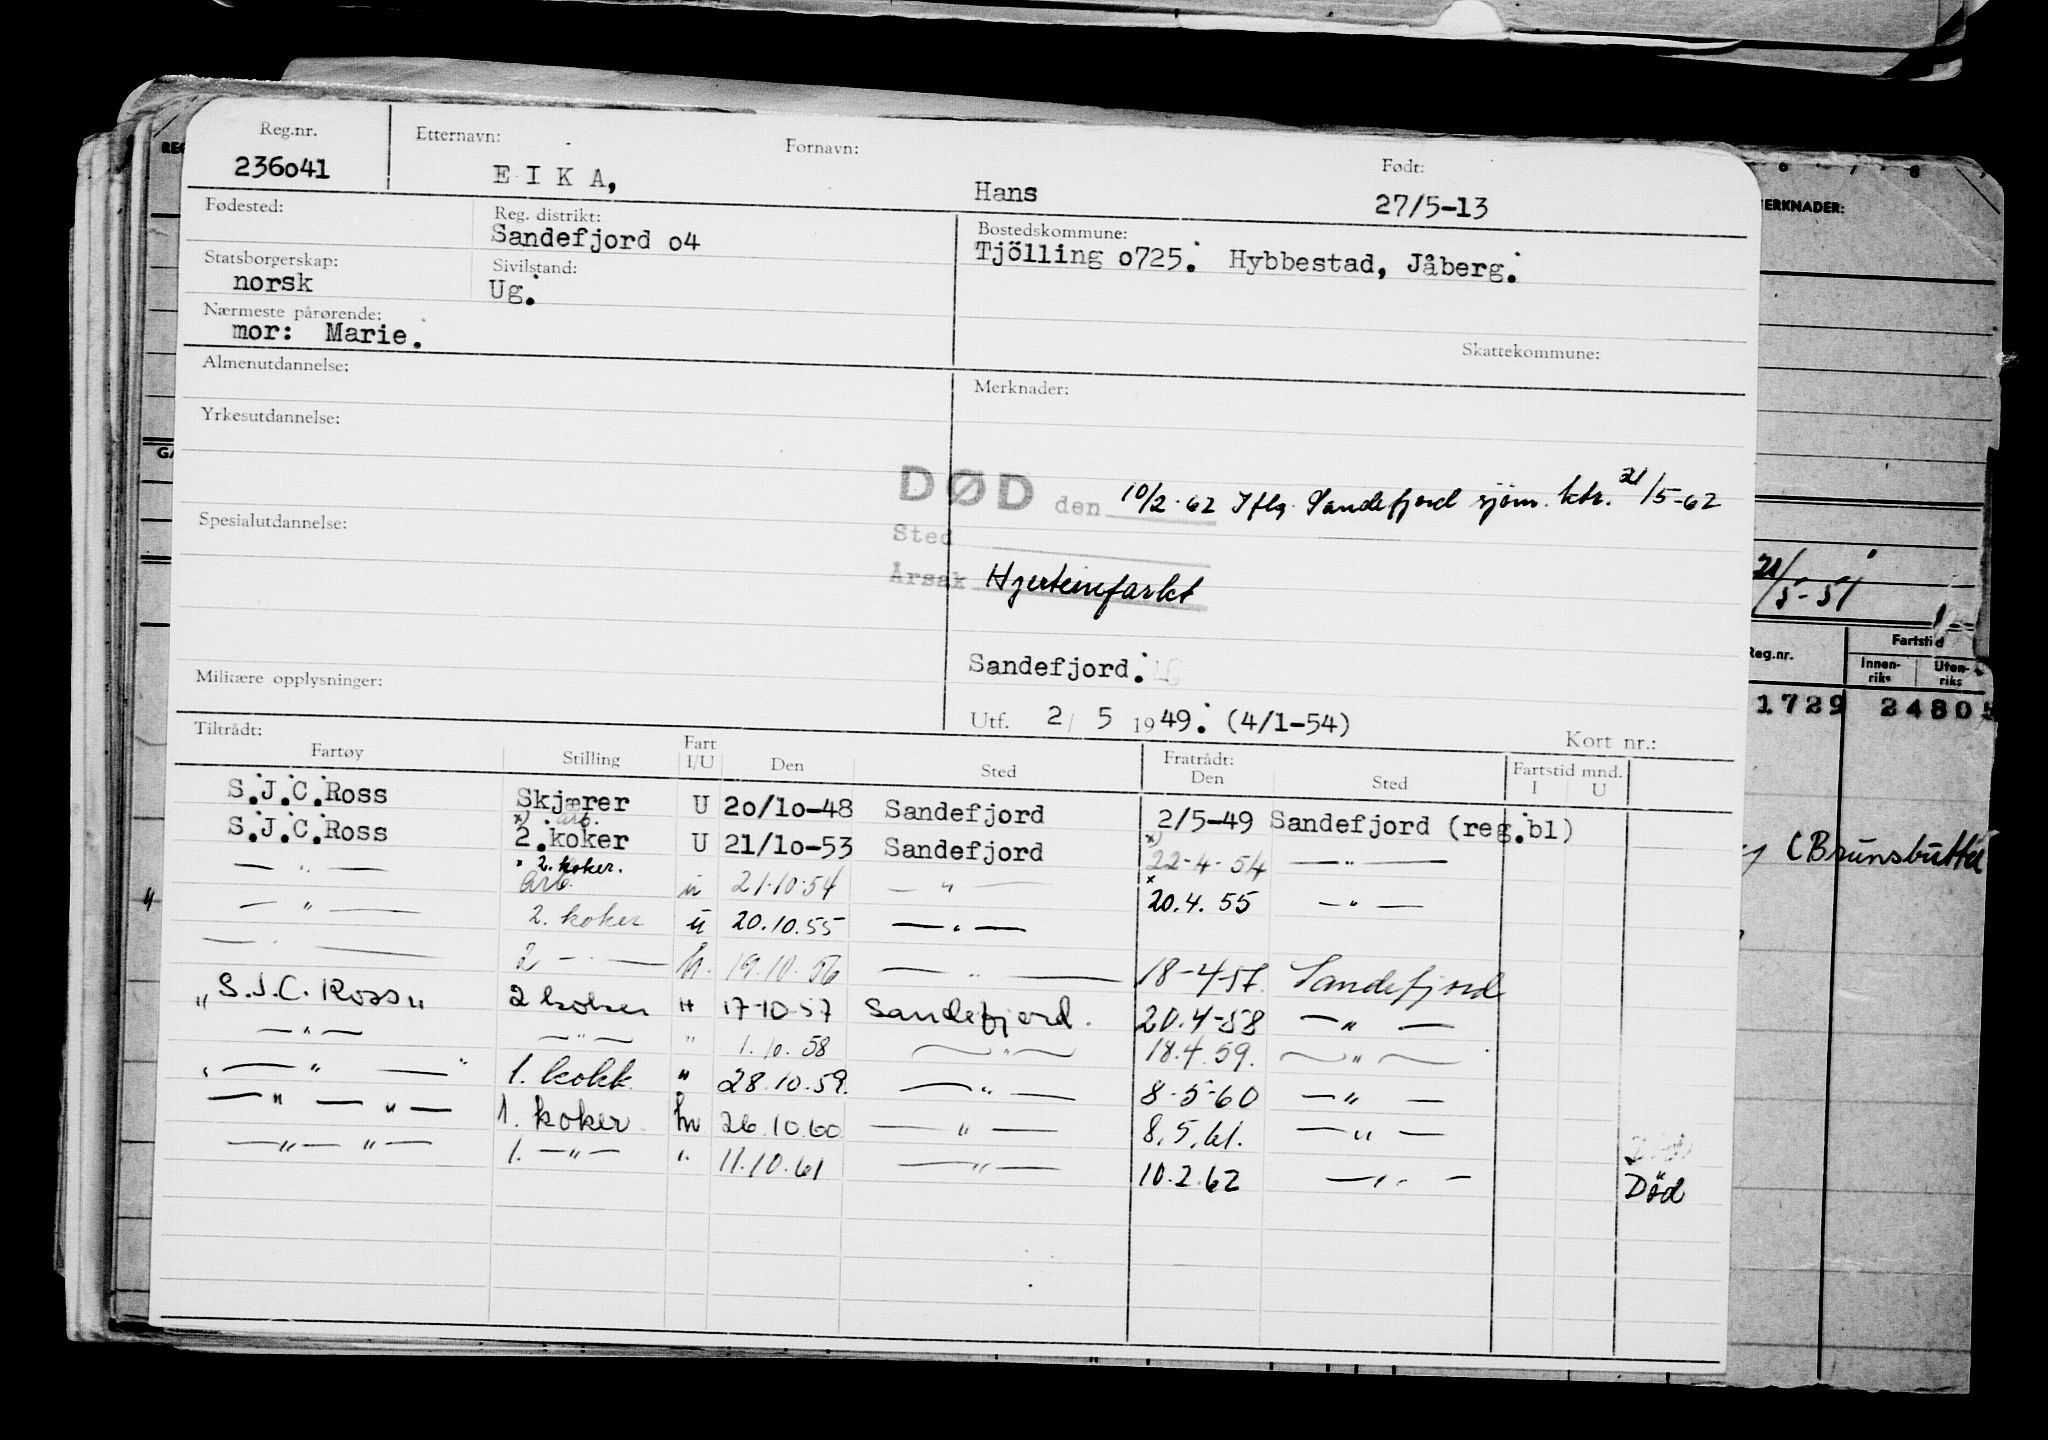 Reg.nr. Etternavn: Fornavn: Født:
236o41 E I K A, Hans 27/5-13
Fødested: Reg. distrikt: Bostedskommune:
Sandefjord o4 Tjölling o725. Hybbestad, Jåberg.
Statsborgerskap: Sivilstand:
norsk Ug.
Nærmeste pårørende:
mor: Marie.
Skattekommune:
Almenutdannelse: Merknader:
Yrkesutdannelse:
DØD den 10/2-62 Iflg. Sandefjord sjöm. ktr. 21/5-62
Spesialutdannelse: Sted
Årsak Hjerteinfarkt
Sandefjord.
Militære opplysninger:
Utf. 2/ 5 1949. (4/1-54)
Tiltrådt: Kort nr.:
Fartøy Stilling Fart I/U Den Sted Fratrådt: Den Sted Fartstid mnd. I U
S.J.C.Ross Skjærer U 2o/1o-48 Sandefjord 2/5-49 Sandefjord (reg.bl)
x) arb.
S.J.C.Ross 2.koker U 21/1o-53 Sandefjord x) 22-4-54 — " —
x 2. koker.
— " — arb. u 21.10.54 — " — x 20.4.55 — " —
— " — 2. koker u 20.10.55 — " —
— " — 2 — " — h. 19.10.56 — " — 18-4-57. Sandefjord
"S.J.C. Ross" 2 koker " 17-10-57 Sandefjord. 20.4-58 — " —
— " — — " — " 1.10.58 — " — 18.4.59. — " —
— " — 1. kokk " 28.10.59. — " — 8-5-60 — " —
— " — " — 1. koker hv 26.10.60 — " — 8.5.61. — " —
— " — " — 1. — " — " 11.10.61 — " — 10.2.62 — " — Död
6 7 8
MERKNADER:
21/5-51
Reg.nr. Fartstid
Innen-riks Uten-riks
1729 24805
(Brunsbüttel